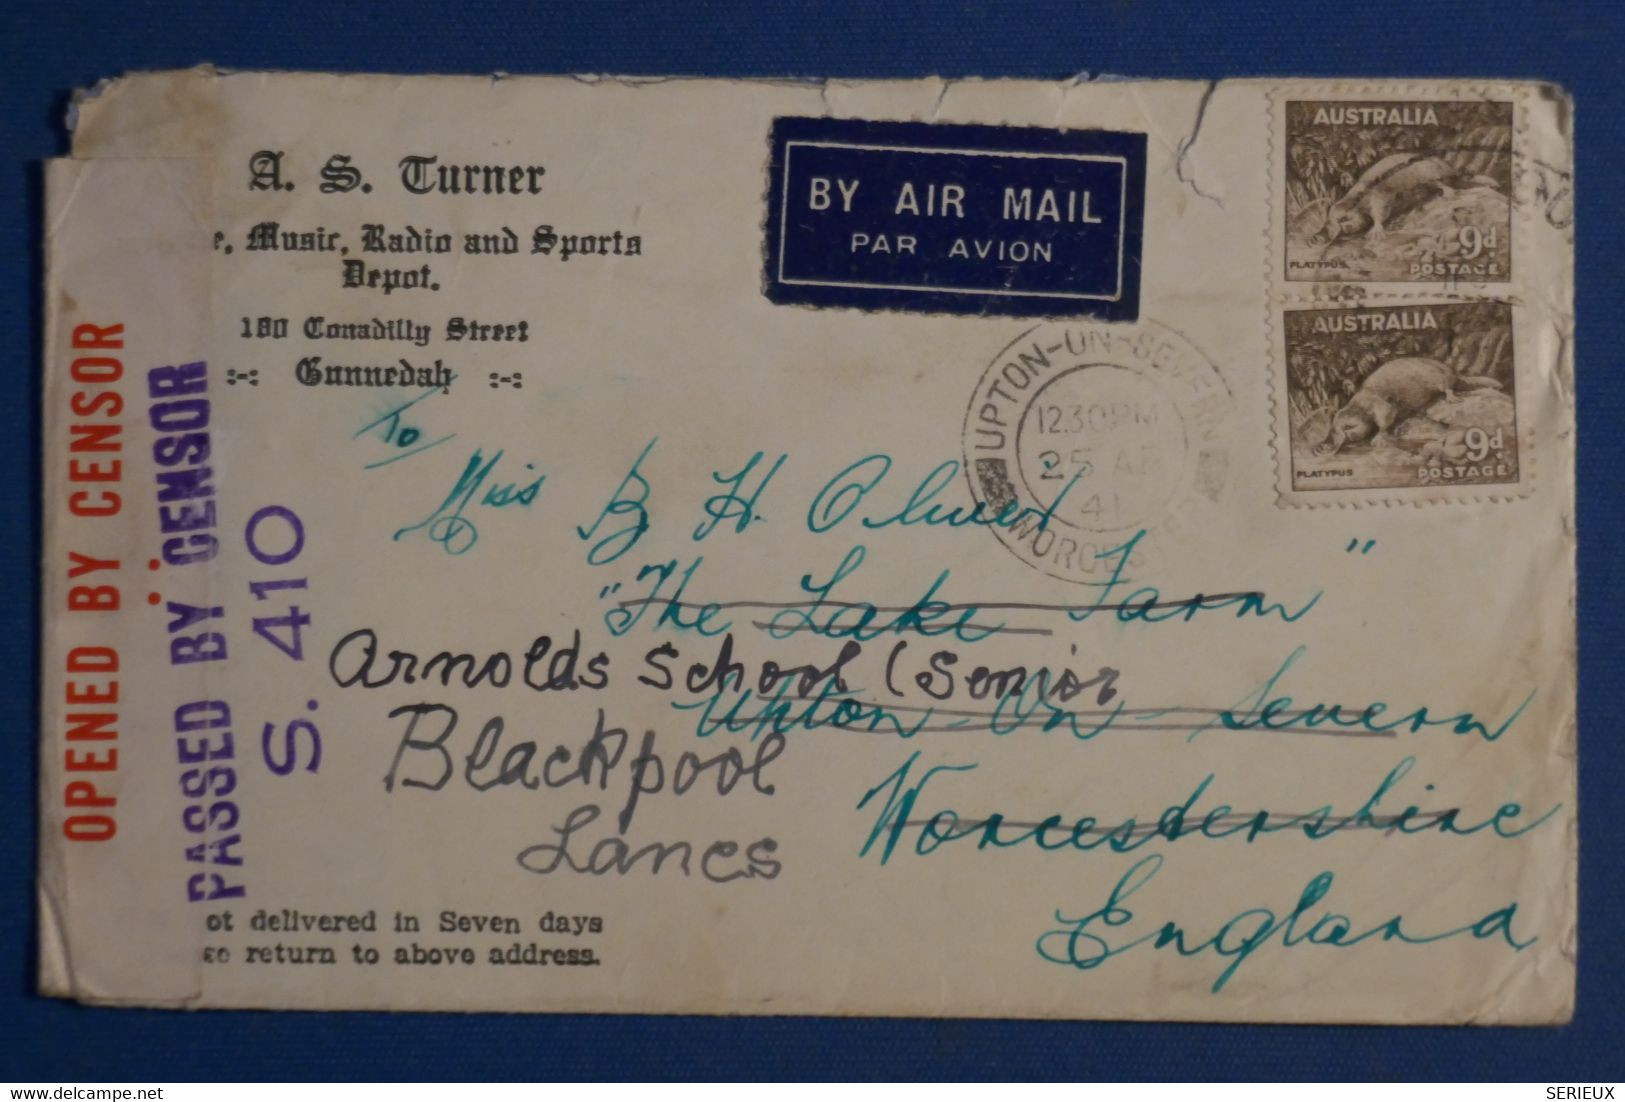 A. S. Turner
Music, Radio and Sports
Depot.
180 Conadilly Street
:-: Gunnedah :-:
BY AIR MAIL
PAR AVION
AUSTRALIA
9d
PLATYPUS
POSTAGE
AUSTRALIA
9d
PLATYPUS
POSTAGE
UPTON-ON-SEVERN
12.30PM
25 AP
41
WORCESTER
OPENED BY CENSOR
PASSED BY CENSOR
S. 410
To
Miss B. H.
"The Lake Farm"
Arnolds School (Senior
Upton-On-Severn
Blackpool
Worcestershire
Lancs
England
ot delivered in Seven days
se return to above address.
SERIEUX